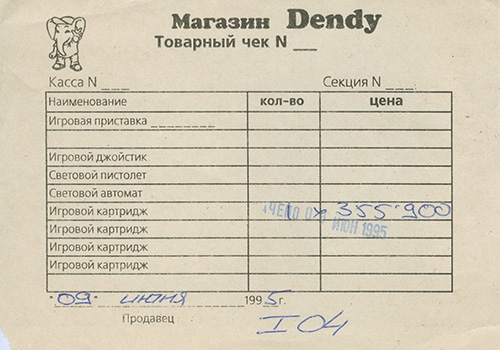 Магазин Dendy
Товарный чек N ___
Касса N ___ Секция N ___
Наименование кол-во цена
Игровая приставка
Игровой джойстик
Световой пистолет
Световой автомат
Игровой картридж 355=900
ИЮН 1995
Игровой картридж
Игровой картридж
Игровой картридж
"09" июня 1995г.
Продавец I 04